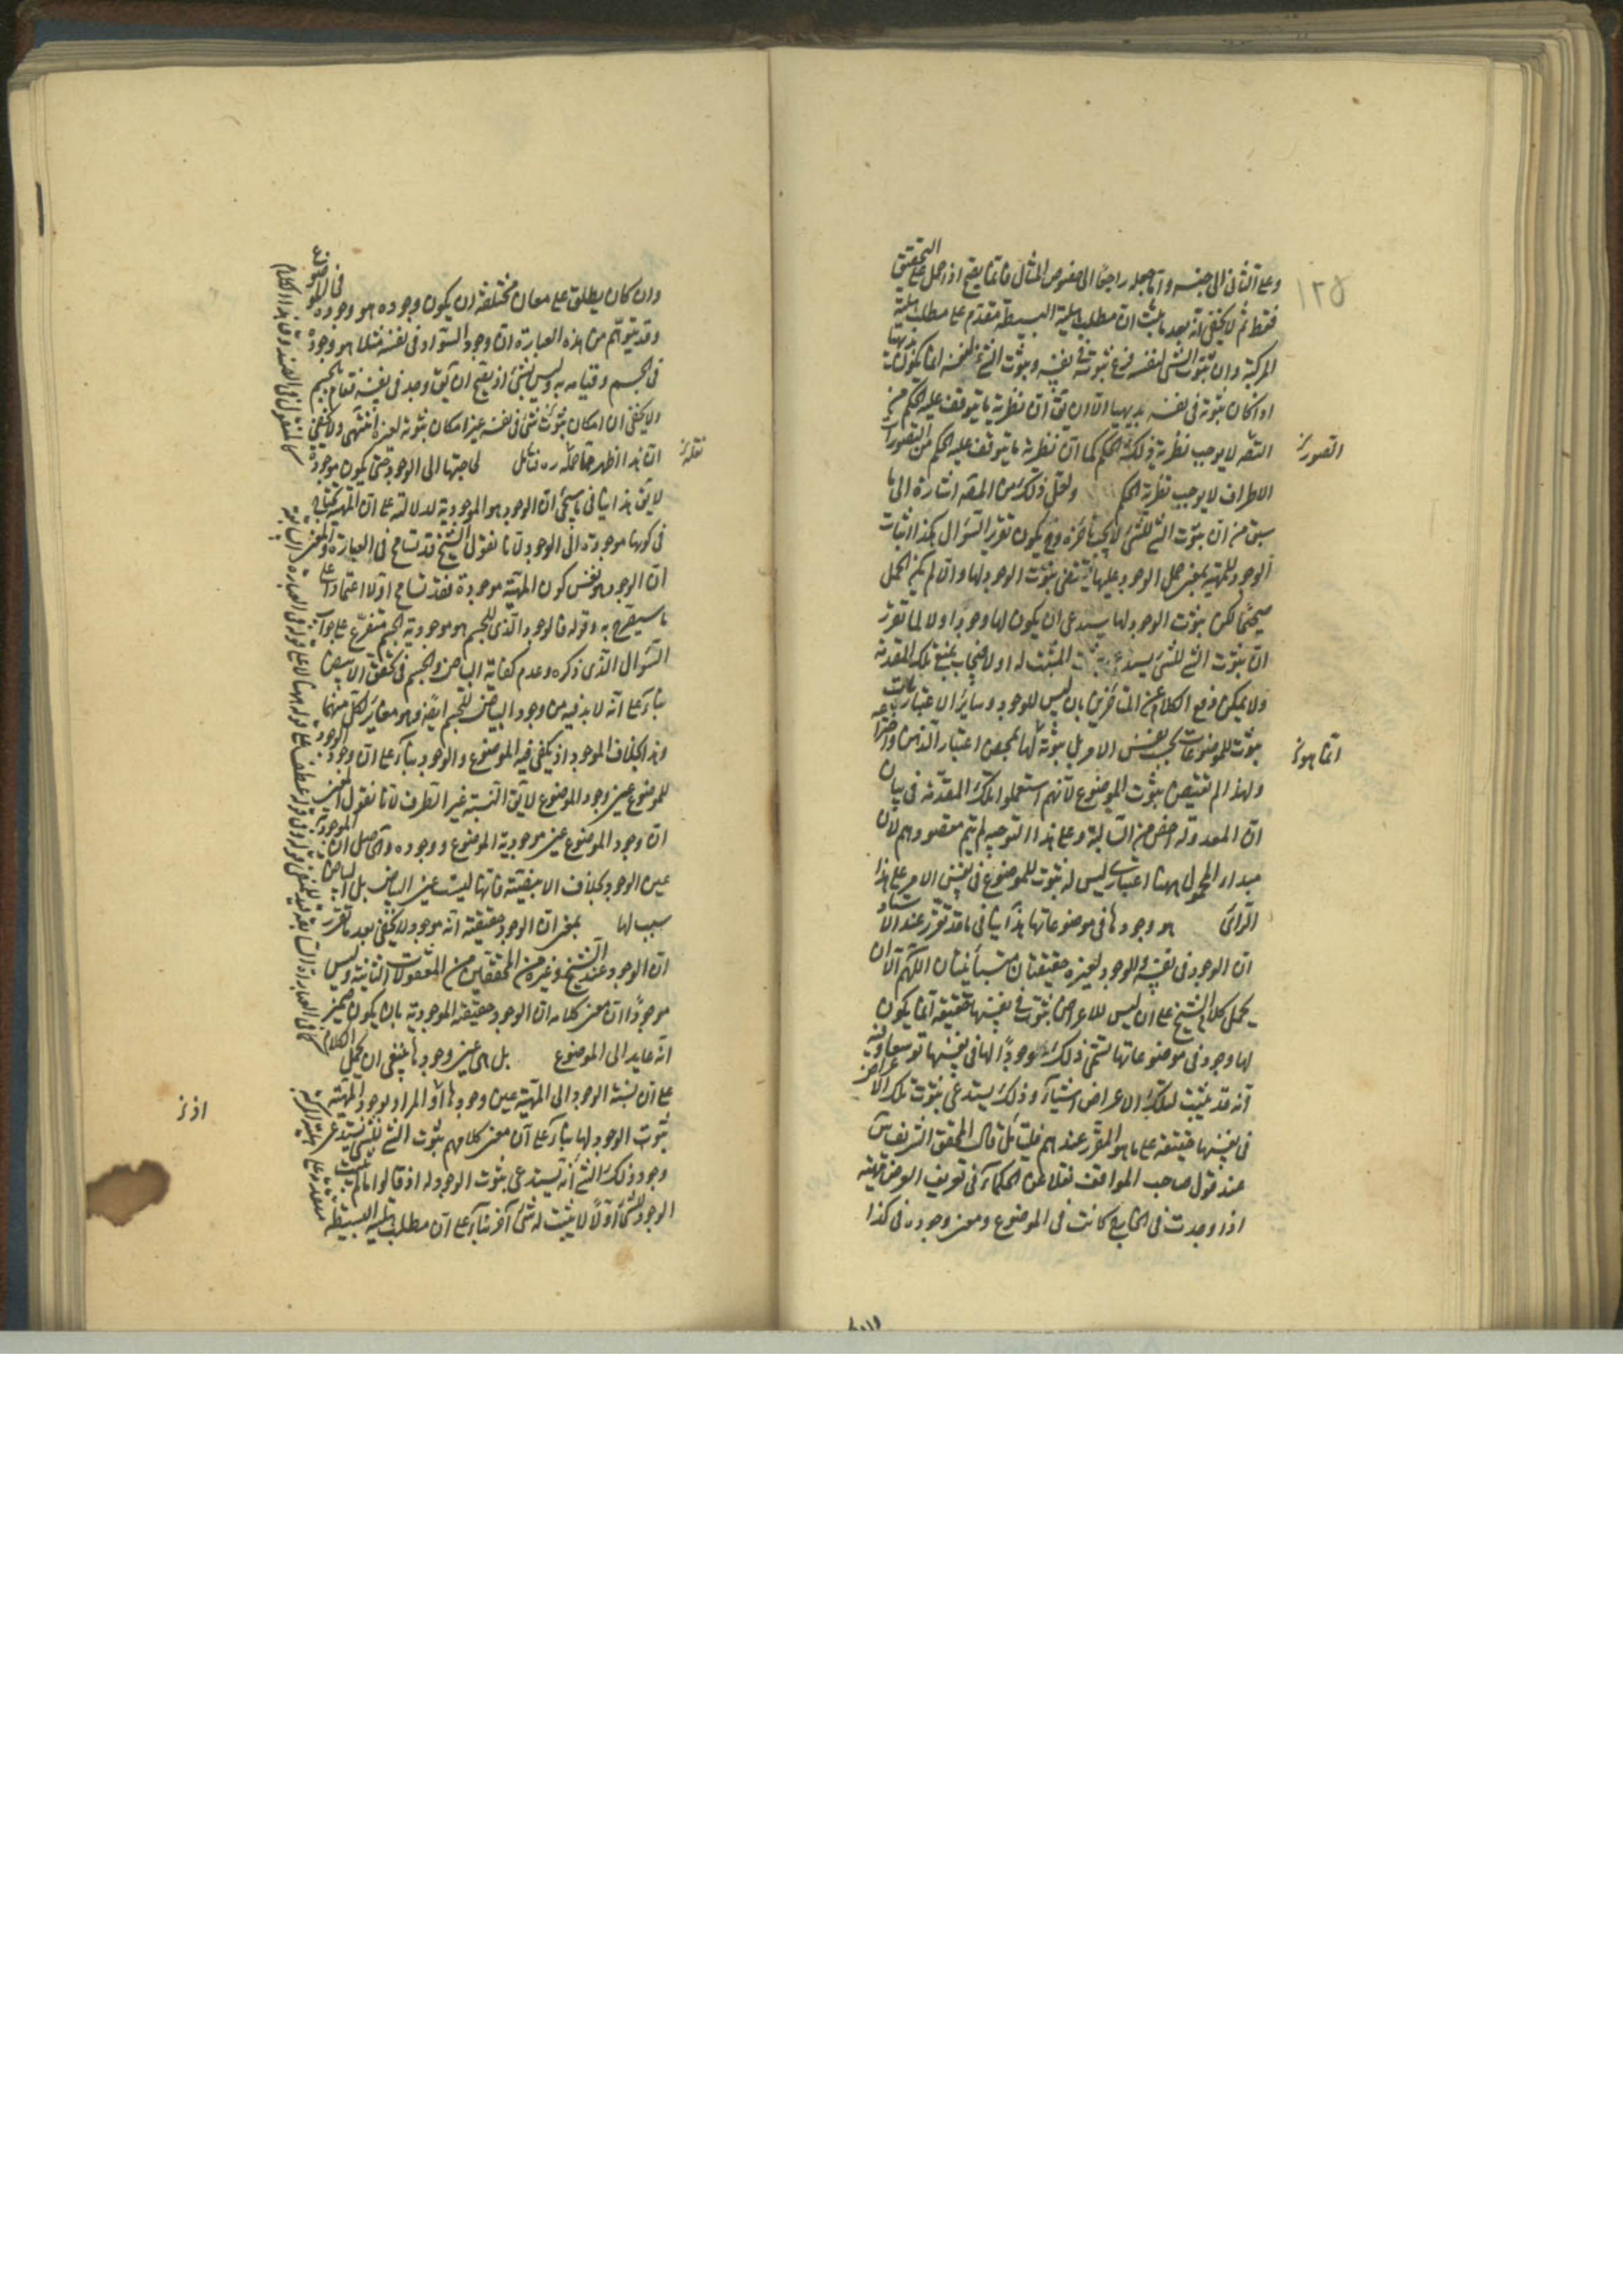 ١٢٥
وعلى الثاني الى جنسه واما جعله راجعا الى خصوص المثال فانما يصح اذا حمل على التحقيق
فقط ثم لا يخفى انه بعد ما ثبت ان مطلب هلية البسيطة مقدم على مطلب هلية
المركبة وان ثبوت الشى لنفسه فرع ثبوته فى نفسه وثبوت الشئ لنفسه انما يكون بديهيا
اذا كان ثبوته فى نفسه بديهيا الا ان يق ان نظرية ما يتوقف عليه الحكم من
التصه لا يوجب نظرية ذلك الحكم كما ان نظرية ما يتوقف عليه الحكم من التصورات
التصور
الاطراف لا يوجب نظرية الحكم ولعل ذلك من المصه اشارة الى ما
سبق من ان ثبوت الشئ للشئ لا يجب تأخره وح يكون تقرير السؤال هكذا اثبات
الوجود للمهية بمعنى حمل الوجود عليها يقتضى ثبوت الوجود لها وان لم يكن الحمل
صحيحا لكن ثبوت الوجود لها يستدعى ان يكون لها وجودا اولا لما تقرر
ان ثبوت الشئ للشئ يستدعى ثبوت المثبت له اولا فيجاب بمنع تلك المقدمة
ولا يمكن دفع الكلام عن المتأخرين بان ليس للوجود وسائر الاعتباريات
ثبوت للموضوعات بحسب نفس الامر بل ثبوته لها بمحض اعتبار الذهن واختراعه
انما هو
ولهذا لم تقتض ثبوت الموضوع لانهم استعملوا تلك المقدمة فى بيان
ان المعدولة اخص من السالبة وعلى هذا التوجيه لم يتم مقصودهم لان
مبدا المحمول ههنا اعتبارى ليس له ثبوت للموضوع فى نفس الامر على هذا
الرأى هو وجودها فى موضوعاتها هذا ينافى ما قد تقرر عند الاستاد
ان الوجود فى نفسه والوجود لغيره حقيقتان متباينتان اللهم الا ان
يحمل كلام الشيخ على ان ليس للاعراض ثبوت فى نفسها حقيقة انما يكون
لها وجود فى موضوعاتها يسمى ذلك وجودا لها فى نفسها توسعا وفيه
انه قد يثبت لتلك الاعراض اشياء وذلك يستدعى ثبوت تلك الاعراض
فى نفسها حقيقة على ما هو المقرر عندهم فليتأمل قال المحقق الشريف
عند قول صاحب المواقف نقلا عن الحكماء فى تعريف العرض مهية
اذا وجدت فى الخارج كانت فى الموضوع ومعنى وجوده فى كذا
وان كان يطلق على معان مختلفة ان يكون وجوده هو وجوده فى الموضوع
وقد يتوهم من هذه العبارة ان وجود السواد فى نفسه مثلا هو وجوده
فى الجسم وقيامه به وليس بشئ اذ يصح ان يق وجد فى نفسه فقام بالجسم
ولا يخفى ان امكان ثبوت شئ فى نفسه غير امكان ثبوته لغيره انتهى ولا يخفى
ان هذا اظهر مما نقله ره فتأمل لحاجتها الى الوجود حتى يكون موجودة
نقله
لا يق هذا ينافى ما سيجئ ان الوجود هو الموجودية لدلالته على ان المهية تحتاج
فى كونها موجودة الى الوجود لانا نقول الشيخ قد تسامح فى العبارة والمعنى
ان الوجود هو نفس كون المهية موجودة فقد تسامح اولا اعتمادا على
ما سيصرح به وقوله فالوجود الذى للجسم هو موجودية الجسم متفرع على جواب
السؤال الذى ذكره وعدم كفاية البياض والجسم فى تحقق الابيض
بناء على انه لا بد فيه من وجود البياض للجسم ايضا وهو مغاير لكل منهما
وهذا بخلاف الموجود اذ يكفى فيه الموضوع والوجود بناء على ان وجود الوجود
للموضوع عين وجود الموضوع لا يق النسبة غير الطرف لانا نقول المعنى
ان وجود الموضوع عين موجودية الموضوع ووجوده والحاصل ان الموجودية
عين الوجود بخلاف الابيضية فانها ليست عين البياض بل البياض
سبب لها بمعنى ان الوجود حقيقته انه موجود لا يخفى بعد ما تقرر
ان الوجود عند الشيخ وغيره من المحققين من المعقولات الثانية وليس
موجودا ان معنى كلامه ان الوجود حقيقته الموجودية بان يكون ضمير
انه عايد الى الموضوع بل هى عين وجودها ينبغى ان يحمل الكلام
على ان نسبة الوجود الى المهية عين وجودها او المراد بوجود المهية
اذ
ثبوت الوجود لها بناء على ان معنى كلامهم ثبوت الشئ للشئ يستدعى
وجود ذلك الشئ انه يستدعى ثبوت الوجود له اذ قالوا ما لم يثبت
الوجود للشئ اولا لا يثبت له شئ آخر بناء على ان مطلب هلية البسيطة